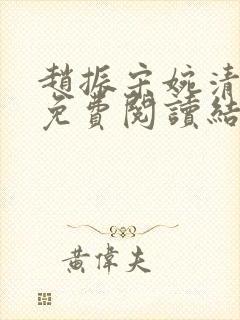 趙振宋婉清
免費閱讀結
黃偉夫